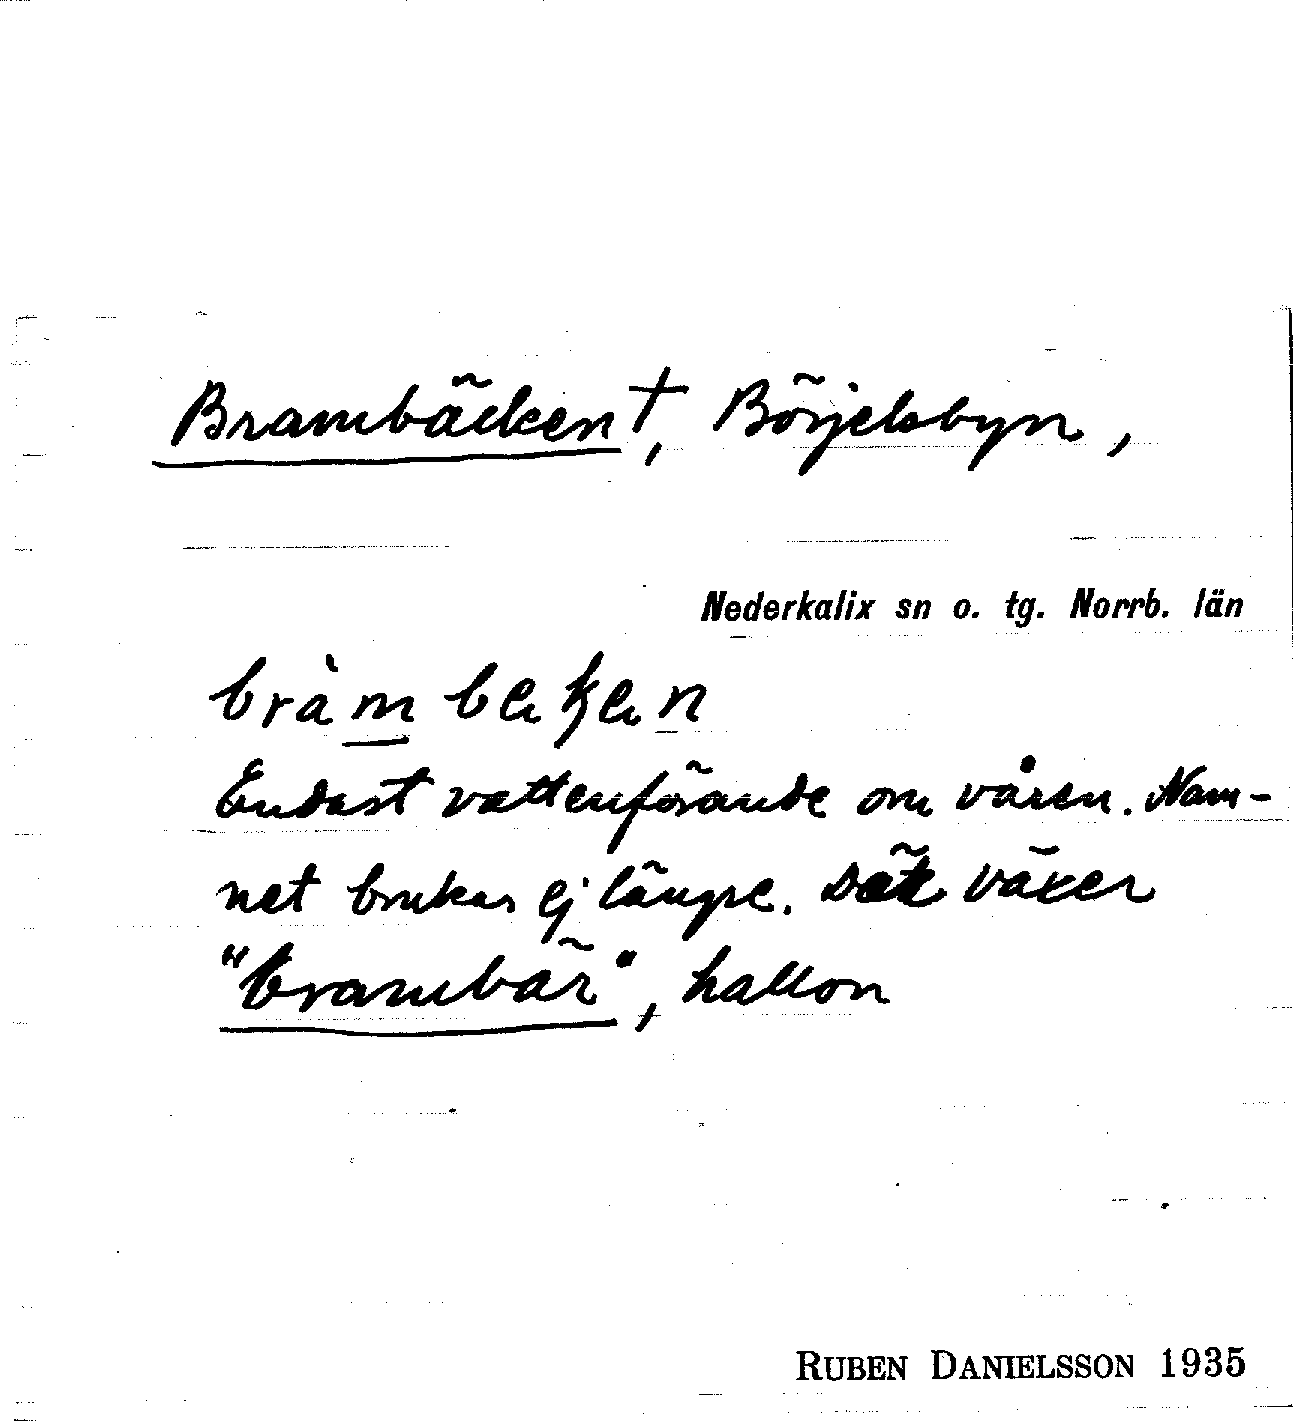 Brambäcken †, Börjelsbyn,
Nederkalix sn o. tg. Norrb. län
bràm beken
Endast vattenförande om våren. Nam-
net brukas ej längre. Där växer
"brambär", hallon
RUBEN DANIELSSON 1935